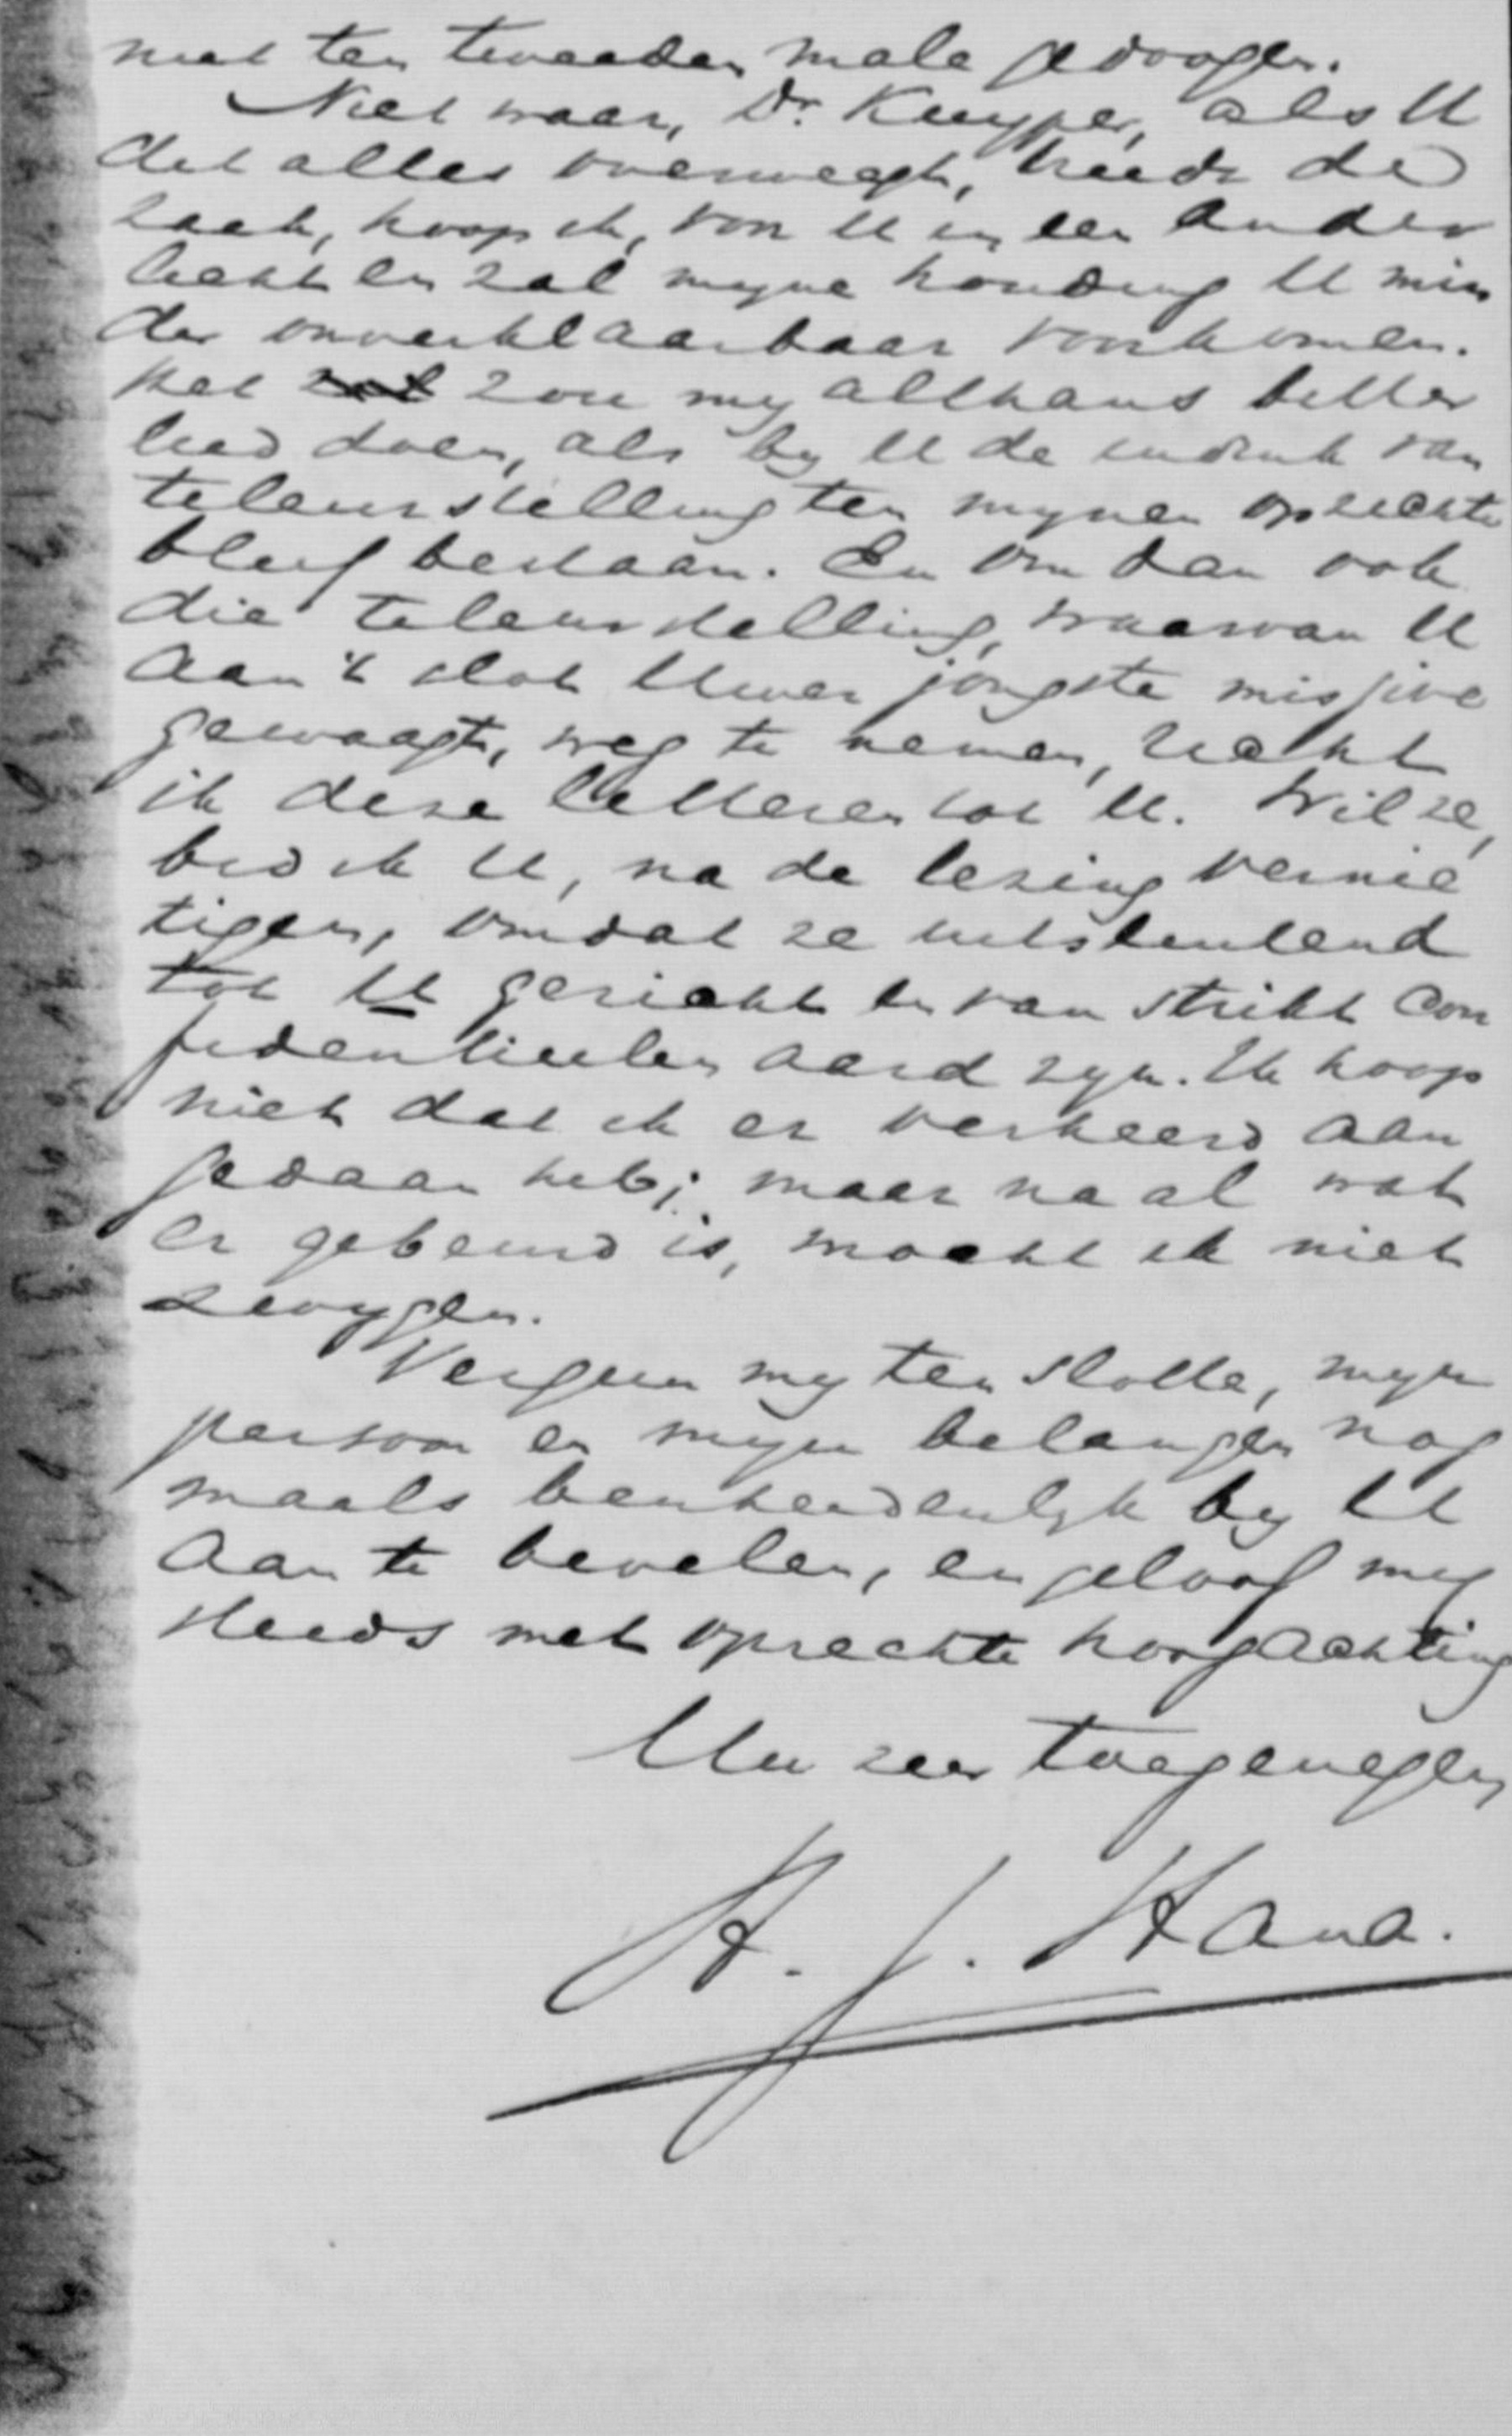 niet ten tweeden male gedoogen.
Niet waar, Dr. Kuyper, als U
dit alles overweegt, treedt de
zaak, hoop ik, voor U in een ander
licht en zal myne houding U min
der onverklaarbaar voorkomen.
Het zou my althans bitter
leed doen, als by U de indruk van
teleurstelling ten mynen opzichte
bleef bestaan. En om dan ook
die teleurstelling, waarvan U
aan 't slot Uwer jongste missive
gewaagt, weg te nemen, richt
ik deze letteren tot U. Wil ze,
bid ik U, na de lezing vernie
tigen, omdat ze uitsluitend
tot U gericht en van strikt con
fidentieelen aard zyn. Ik hoop
niet dat ik er verkeerd aan
gedaan heb; maar na al wat
er gebeurd is, mocht ik niet
zwygen.
Vergun my ten slotte, myn
persoon en myn belangen nog
maals bescheidenlyk by U
aan te bevelen, en geloof my
steeds met oprechte hoogachting
Uw zeer toegenegen
H. J. Hana.